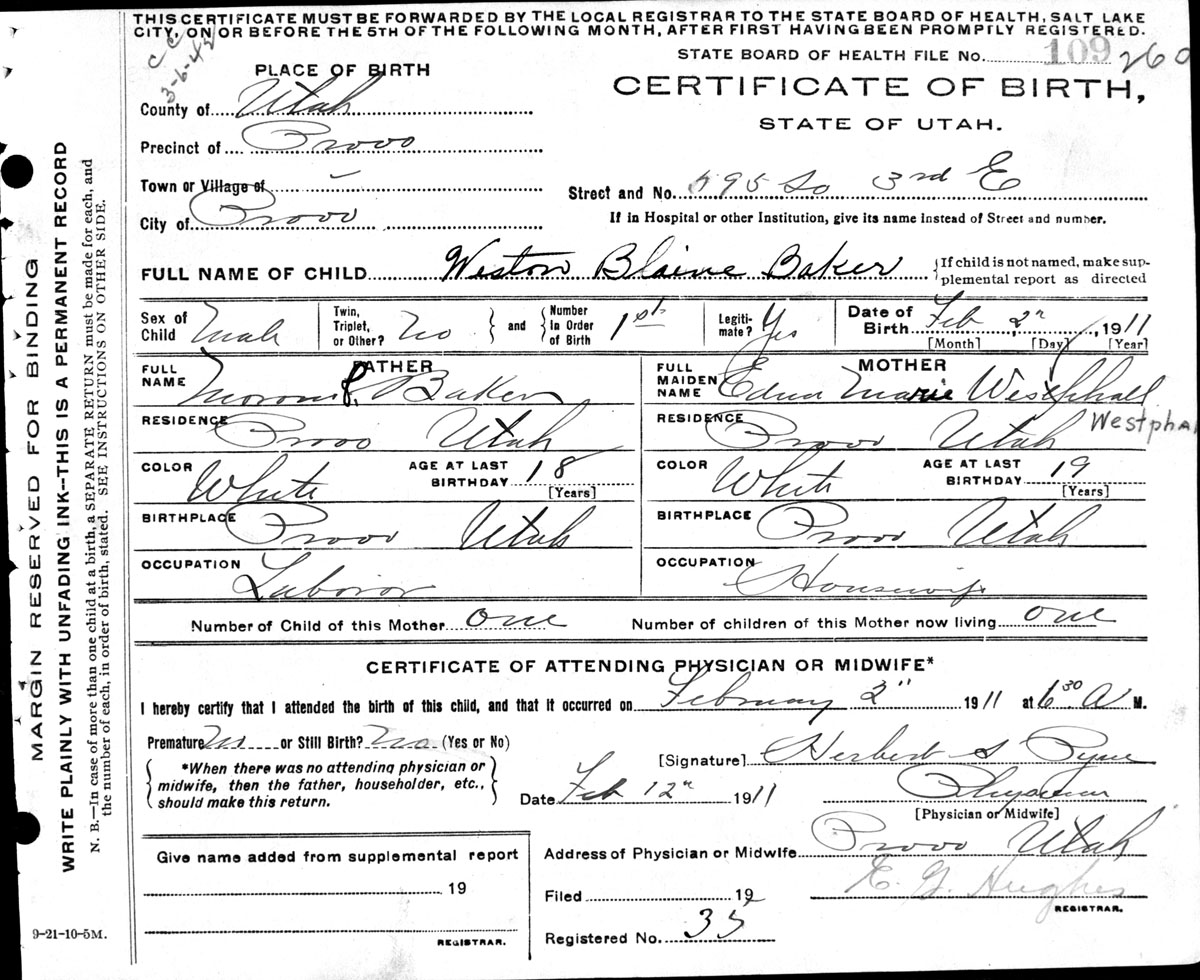 THIS CERTIFICATE MUST BE FORWARDED BY THE LOCAL REGISTRAR TO THE STATE BOARD OF HEALTH, SALT LAKE
CITY, ON OR BEFORE THE 5TH OF THE FOLLOWING MONTH, AFTER FIRST HAVING BEEN PROMPTLY REGISTERED.
C C
3-6-42
STATE BOARD OF HEALTH FILE No. 109 260
PLACE OF BIRTH
CERTIFICATE OF BIRTH,
STATE OF UTAH.
County of Utah
Precinct of Provo
Town or Village of -
Street and No. 595 So 3rd E
City of Provo
If in Hospital or other Institution, give its name instead of Street and number.
FULL NAME OF CHILD Weston Blaine Baker {If child is not named, make sup-
plemental report as directed
Sex of Child Male
Twin, Triplet, or Other? No } and { Number In Order of Birth 1st
Legiti-mate? Yes
Date of Birth Feb 2", 1911
[Month] [Day] [Year]
FATHER
FULL NAME Moroni P. Baker
RESIDENCE Provo Utah
COLOR White AGE AT LAST BIRTHDAY 18
[Years]
BIRTHPLACE Provo Utah
OCCUPATION Laboror
MOTHER
FULL MAIDEN NAME Edna Marie Westphall
Westphal
RESIDENCE Provo Utah
COLOR White AGE AT LAST BIRTHDAY 19
[Years]
BIRTHPLACE Provo Utah
OCCUPATION Housewife
Number of Child of this Mother one Number of children of this Mother now living one
CERTIFICATE OF ATTENDING PHYSICIAN OR MIDWIFE*
I hereby certify that I attended the birth of this child, and that it occurred on February 2" 1911 at 6 30 A M.
Premature No or Still Birth? No (Yes or No)
*When there was no attending physician or
midwife, then the father, householder, etc.,
should make this return.
[Signature] Herbert S Pyne
Date Feb 12" 1911 Physician
[Physician or Midwife]
Give name added from supplemental report
19
REGISTRAR.
Address of Physician or Midwife Provo Utah
Filed 19 E. G. Hughes
REGISTRAR.
Registered No. 35
9-21-10-5M.
MARGIN RESERVED FOR BINDING
WRITE PLAINLY WITH UNFADING INK--THIS IS A PERMANENT RECORD
N. B.—In case of more than one child at a birth, a SEPARATE RETURN must be made for each, and
the number of each, in order of birth, stated. SEE INSTRUCTIONS ON OTHER SIDE.